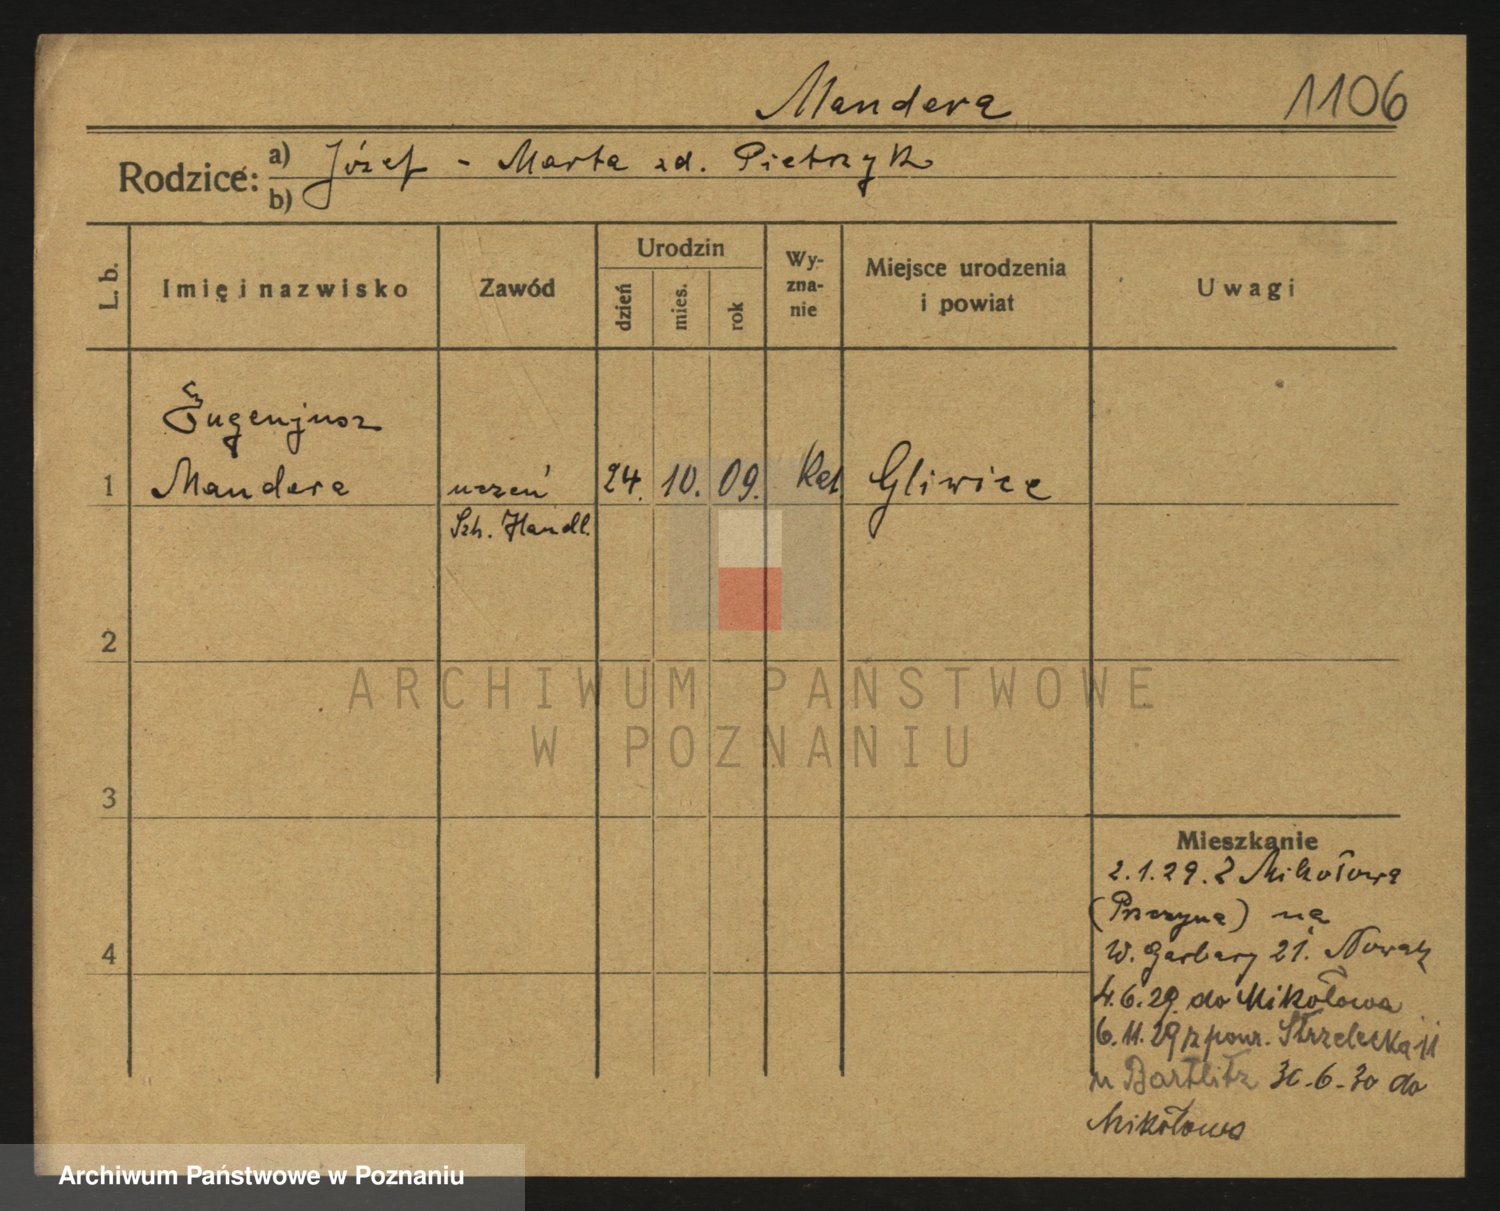 Mandera 1106
Rodzice: a) Józef - Marta zd. Pietrzyk
b)
L. b.
Imię i nazwisko
Zawód
Urodzin
dzień
mies.
rok
Wy-
zna-
nie
Miejsce urodzenia
i powiat
Uwagi
Eugenjusz
1 Mandera uczeń 24. 10. 09. Kat. Gliwice
Szk. Handl.
2
3
4
Mieszkanie
2.1.29. z Mikołowa
na
W. Garbary 21. Nowak
4.6.29. do Mikołowa
6.11.29 z powr. Strzelecka 11
u 30.6.30 do
Mikołowa
ARCHIWUM PAŃSTWOWE
W POZNANIU
Archiwum Państwowe w Poznaniu